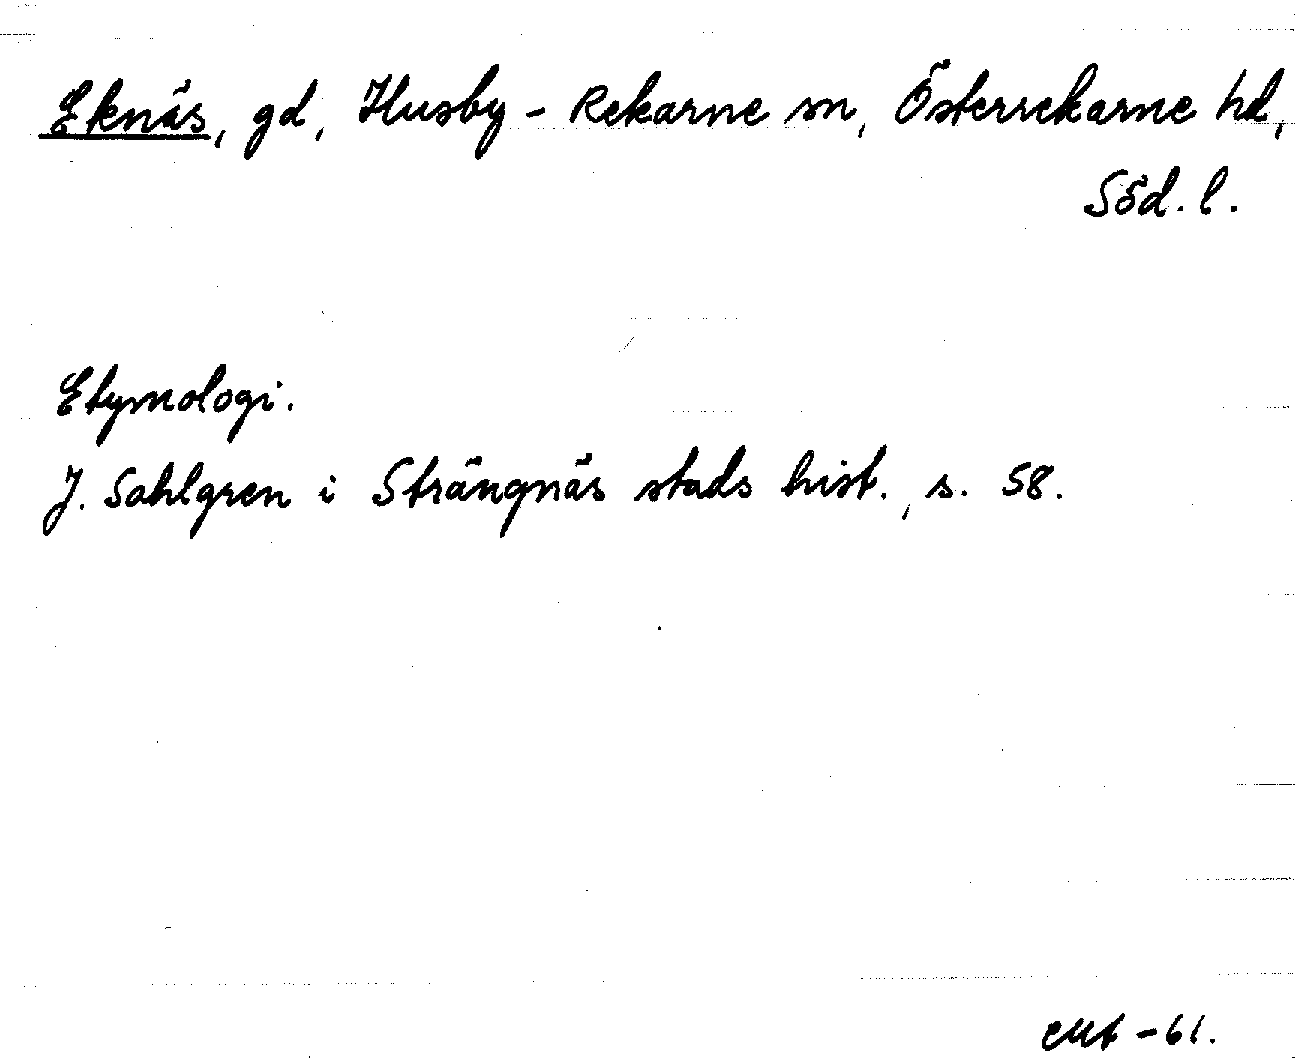 Eknäs, gd, Husby-Rekarne sn, Österrekarne hd,
Söd. l.
Etymologi.
J. Sahlgren i Strängnäs stads hist., s. 58.
-61.